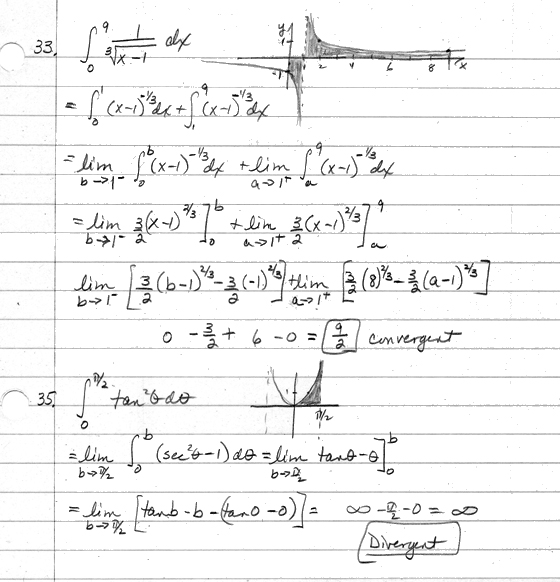 33. ∫₀⁹ 1/∛(x-1) dx
y 1 -1 2 4 6 8 x
= ∫₀¹ (x-1)^(-1/3) dx + ∫₁⁹ (x-1)^(-1/3) dx
= lim b→1⁻ ∫₀ᵇ (x-1)^(-1/3) dx + lim a→1⁺ ∫ₐ⁹ (x-1)^(-1/3) dx
= lim b→1⁻ 3/2 (x-1)^(2/3) ]₀ᵇ + lim a→1⁺ 3/2 (x-1)^(2/3) ]ₐ⁹
lim b→1⁻ [3/2 (b-1)^(2/3) - 3/2 (-1)^(2/3)] + lim a→1⁺ [3/2 (8)^(2/3) - 3/2 (a-1)^(2/3)]
0 - 3/2 + 6 - 0 = 9/2 convergent
35. ∫₀^(π/2) tan²θ dθ
π/2
= lim b→π/2 ∫₀ᵇ (sec²θ - 1) dθ = lim b→π/2 tanθ - θ ]₀ᵇ
= lim b→π/2 [tan b - b - (tan 0 - 0)] = ∞ - π/2 - 0 = ∞
Divergent